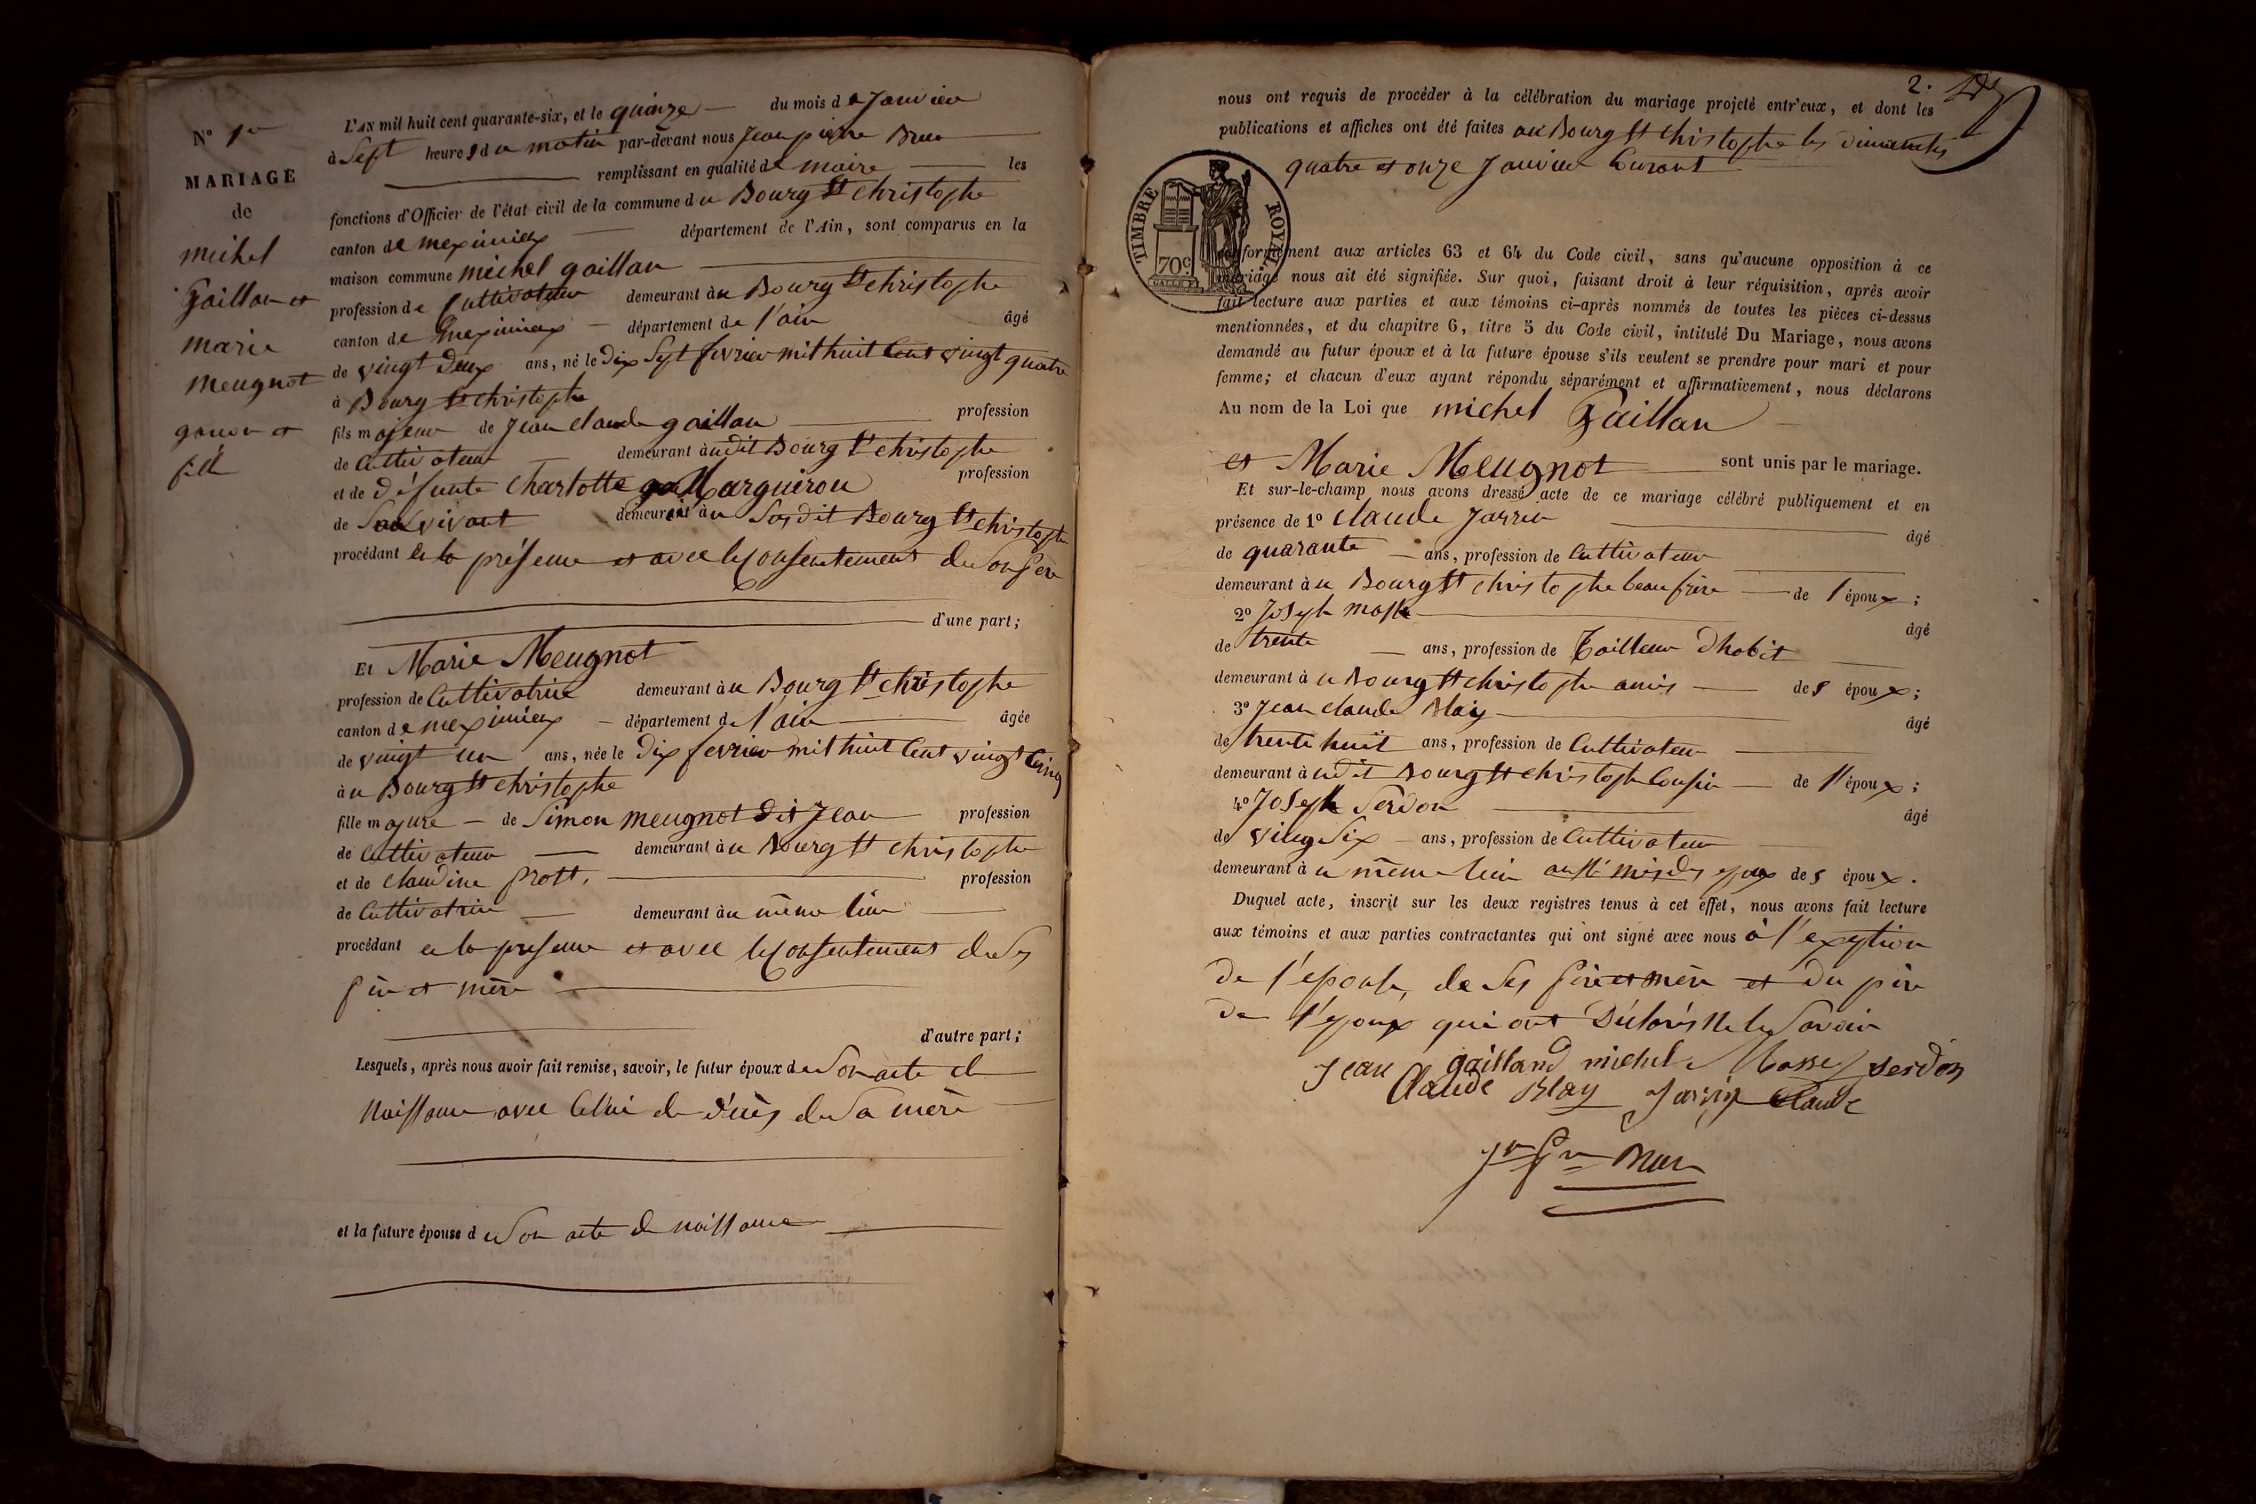 N° 1er
MARIAGE
de
michel
Gaillan et
marie
meugnot
garçon et
fille
L'AN mil huit cent quarante-six, et le quinze du mois de Janvier
à Sept heures du matin par-devant nous Jean pierre
remplissant en qualité de maire les
fonctions d'Officier de l'état civil de la commune du Bourg St christophe
canton de meximieux département de l'Ain, sont comparus en la
maison commune michel gaillan
profession de Cultivateur demeurant au Bourg St christophe
canton de meximieux département de l'ain âgé
de vingt Deux ans, né le Dix Sept fevrier mil huit Cent vingt quatre
à Bourg St christophe
fils majeur de Jean claude gaillan profession
de Cultivateur demeurant audit Bourg St christophe
et de défunte Charlotte Marguiron profession
de Son vivant demeurant au Susdit Bourg St christophe
procédant en la présence et avec le Consentement de Son père
d'une part;
Et Marie Meugnot
profession de Cultivatrice demeurant au Bourg St christophe
canton de meximieux département de l'ain âgée
de vingt un ans, née le Dix fevrier mil huit Cent vingt Cinq
au Bourg St christophe
fille majure de Simon meugnot dit Jean profession
de Cultivateur demeurant au Bourg St christophe
et de claudine prost profession
de Cultivatrice demeurant au même lieu
procédant en la presence et avec le Consentement de Ses
père et mère
d'autre part;
Lesquels, après nous avoir fait remise, savoir, le futur époux de Son acte de
Naissance avec Celui de décès de Sa mère
et la future épouse de Son acte de naissance
2.
nous ont requis de procéder à la célébration du mariage projeté entr'eux, et dont les
publications et affiches ont été faites au Bourg St christophe les dimanches
quatre et onze Janvier Courant
TIMBRE ROYAL
70c
conformément aux articles 63 et 64 du Code civil, sans qu'aucune opposition à ce
mariage nous ait été signifiée. Sur quoi, faisant droit à leur réquisition, après avoir
fait lecture aux parties et aux témoins ci-après nommés de toutes les pièces ci-dessus
mentionnées, et du chapitre 6, titre 5 du Code civil, intitulé Du Mariage, nous avons
demandé au futur époux et à la future épouse s'ils veulent se prendre pour mari et pour
femme; et chacun d'eux ayant répondu séparément et affirmativement, nous déclarons
Au nom de la Loi que michel Gaillan
et Marie Meugnot sont unis par le mariage.
Et sur-le-champ nous avons dressé acte de ce mariage célébré publiquement et en
présence de 1° claude Jarrin âgé
de quarante ans, profession de Cultivateur
demeurant au Bourg St christophe beau frère de l'époux;
2° Joseph masse âgé
de trente ans, profession de Tailleur dhabit
demeurant au Bourg St christophe amis des époux;
3° Jean claude Blay âgé
de trente huit ans, profession de Cultivateur
demeurant audit Bourg St christophe Cousin de l'époux;
4° Joseph Serdon âgé
de vingt Six ans, profession de Cultivateur
demeurant au même lieu des époux.
Duquel acte, inscrit sur les deux registres tenus à cet effet, nous avons fait lecture
aux témoins et aux parties contractantes qui ont signé avec nous à l'exeption
de l'épouse, de Ses père et mère et du père
de l'époux qui ont Déclarés Ne le Savoir
gailland michel Masse Serdon
Jean Claude Blay Jarrin Claude